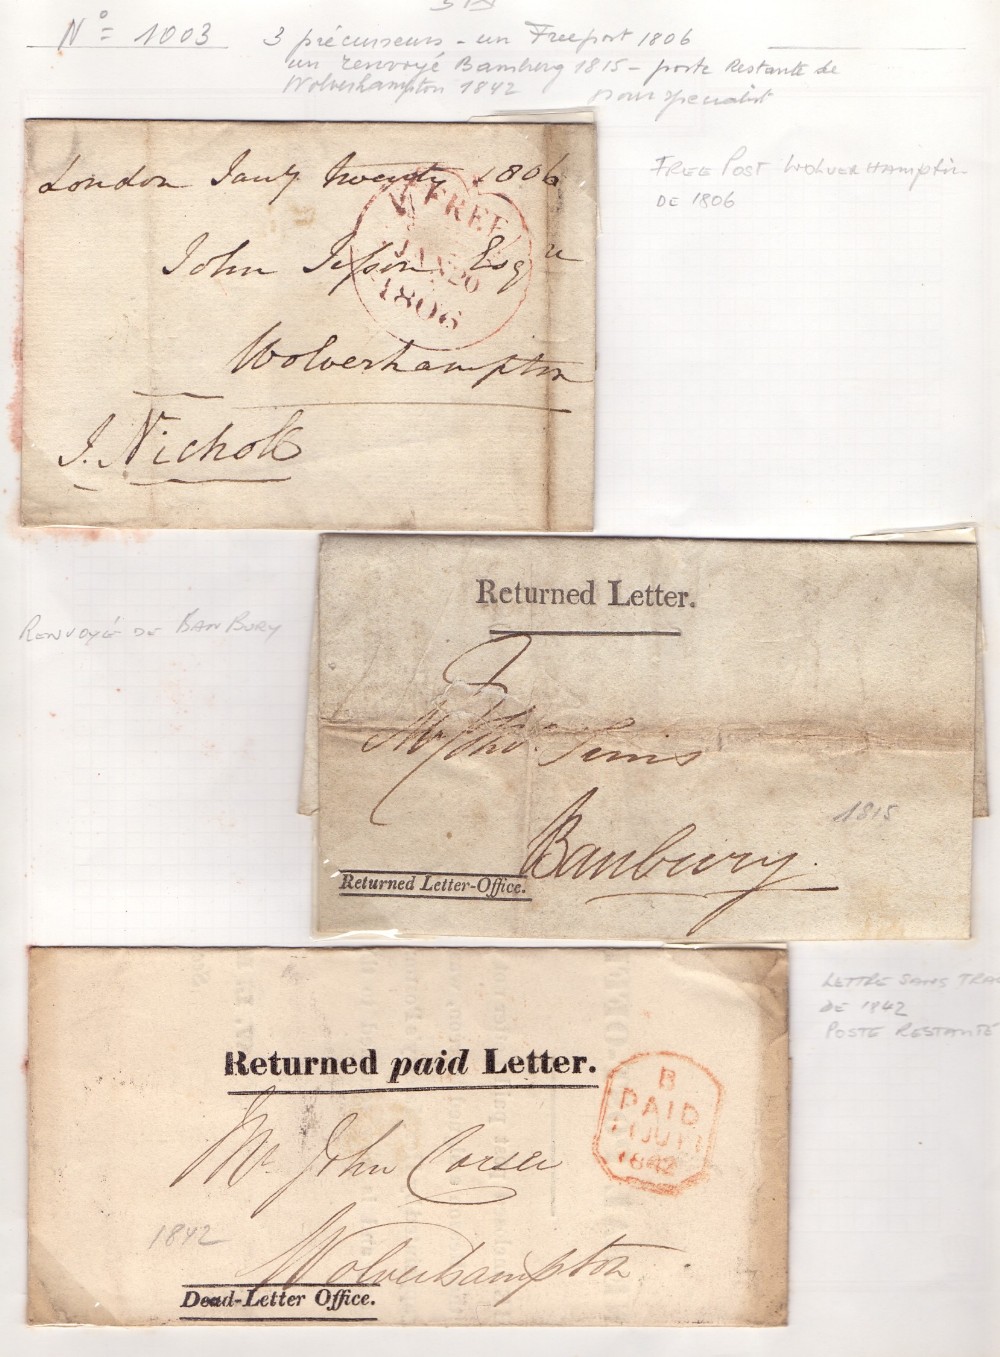 N° = 1003
3 précurseurs - un Freeport 1806
un renvoyé Bamberg 1815 - poste Restante de
Wolverhampton 1842 pour specialist
FREE POST WOLVERHAMPTON
DE 1806
London Jany twenty 1806
FREE
JAN 20
1806
John Jesson Esqre
Wolverhampton
J. Nicholl
RENVOYÉ DE BANBURY
Returned Letter.
Mr Thos. Sims
Banbury.
1815
Returned Letter-Office.
LETTRE SANS TRAC
DE 1842
POSTE RESTANTE
Returned paid Letter.
B
PAID
JU
1842
Mr John Corser
1842
Wolverhampton
Dead-Letter Office.